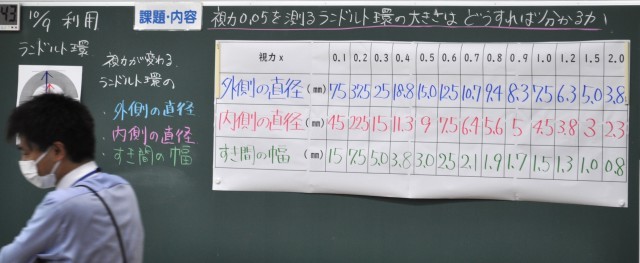 43
10/9 利用
課題・内容
視力0.05を測るランドルト環の大きさは どうすれば分かるか
ランドルト環
視力が変わる
ランドルト環の
・外側の直径
・内側の直径
・すき間の幅
視力 x 0.1 0.2 0.3 0.4 0.5 0.6 0.7 0.8 0.9 1.0 1.2 1.5 2.0
外側の直径 (mm) 75 37.5 25 18.8 15.0 12.5 10.7 9.4 8.3 7.5 6.3 5.0 3.8
内側の直径 (mm) 45 22.5 15 11.3 9 7.5 6.4 5.6 5 4.5 3.8 3 2.3
すき間の幅 (mm) 15 7.5 5.0 3.8 3.0 2.5 2.1 1.9 1.7 1.5 1.3 1.0 0.8